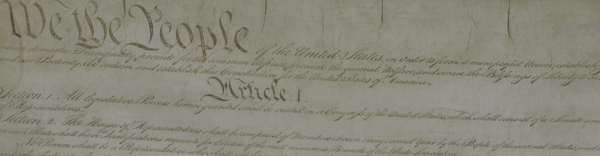 We the People of the United States, in Order to form a more perfect Union, establish
insure domestic Tranquility, provide for the common defence, promote the general Welfare, and secure the Blessings of Liberty to
and our Posterity, do ordain and establish this Constitution for the United States of America.
Article I.
Section. 1. All legislative Powers herein granted shall be vested in a Congress of the United States, which shall consist of a Senate and
of Representatives.
Section. 2. The House of Representatives shall be composed of Members chosen every second Year by the People of the several States, and
in each State shall have Qualifications requisite for Electors of the most numerous Branch of the State
No Person shall be a Representative who shall not